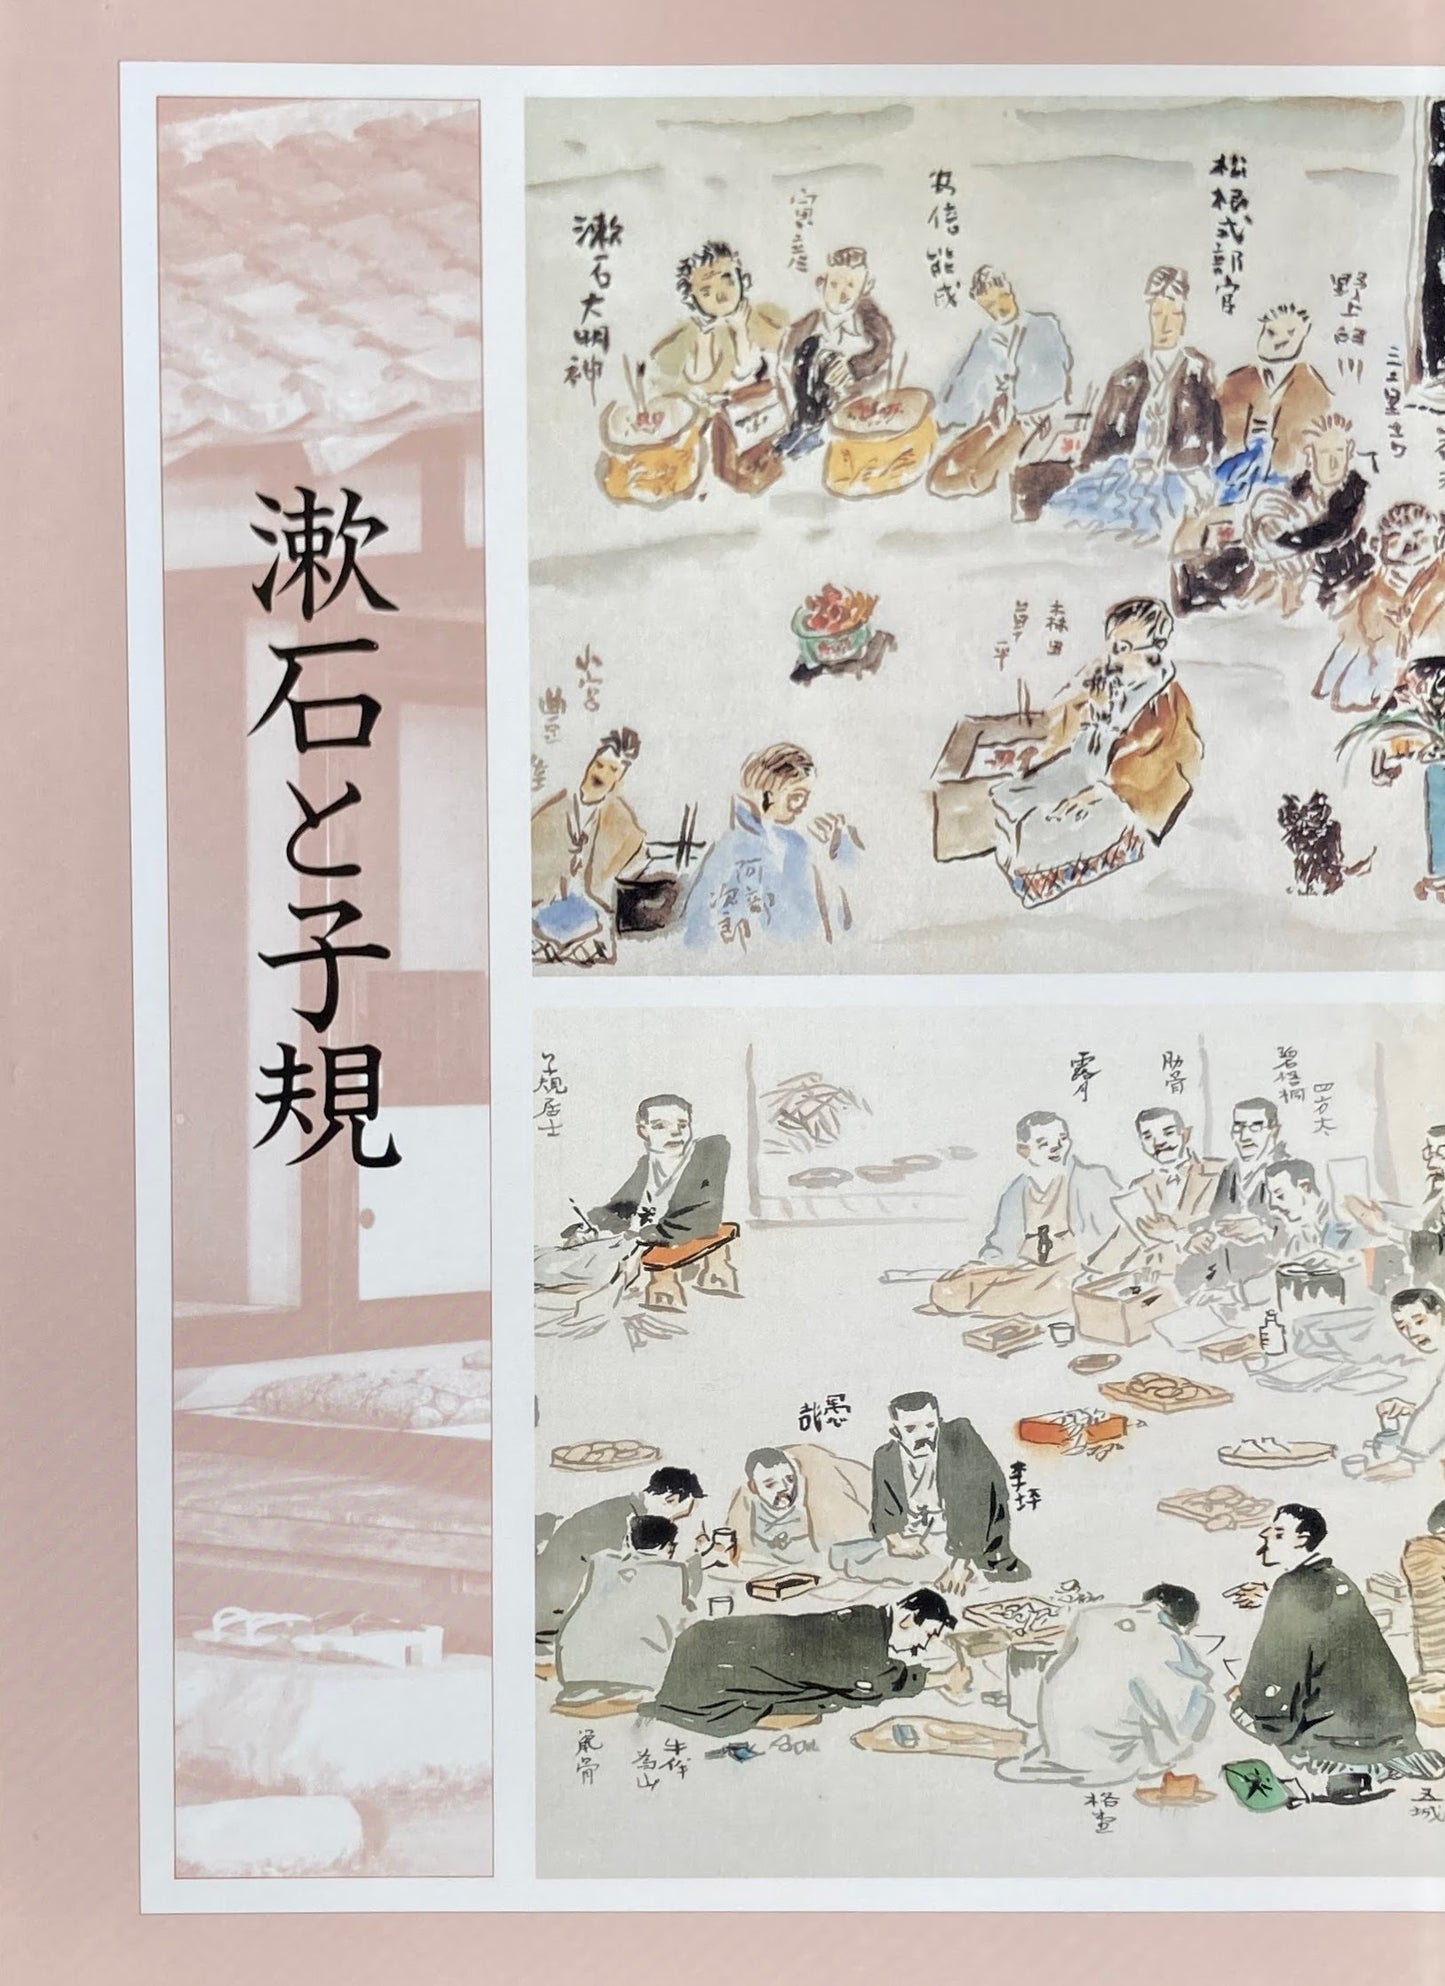 漱石と子規
漱石大明神
寅彦
安倍能成
松根式部官
野上臼川
三重吉
森田
草平
小宮
豊
隆
阿部
次郎
子規居士
露月
肋骨
碧梧桐
四方太
愚哉
李坪
鼠骨
牛伴
為山
格堂
五城